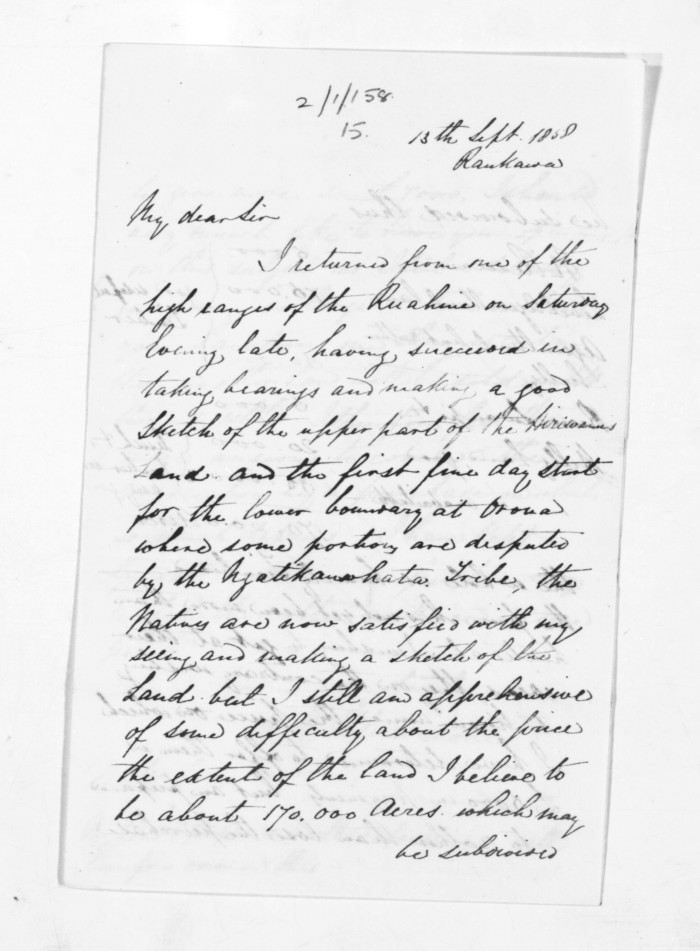 2/1/158.
15.
13th Sept. 1858
Raukawa
My dear Sir
I returned from one of the
high ranges of the Ruahine on Saturday
Evening late, having succeeded in
taking bearings and making a good
Sketch of the upper part of the
Land and the first fine day start
for the lower boundary at Oroua
where some portions are disputed
by the Ngatikauwhata Tribe, the
Natives are now satisfied with my
seeing and making a sketch of the
Land but I still am apprehensive
of some difficulty about the price
the extent of the land I believe to
be about 170.000 Acres. which may
be subdivided